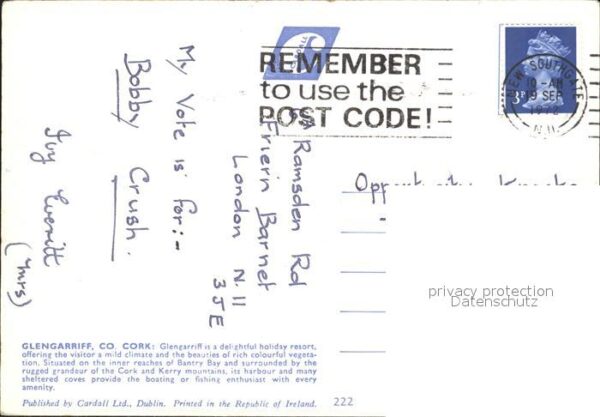 REMEMBER
to use the
POST CODE!
NEW SOUTHGATE
10-AM
19 SEP
1972
N.11
3P
Ramsden Rd
Friern Barnet
London N.11
3JE
My Vote is for:-
Bobby Crush.
Ivy Everitt
(Mrs)
privacy protection
Datenschutz
GLENGARRIFF, CO. CORK: Glengarriff is a delightful holiday resort,
offering the visitor a mild climate and the beauties of rich colourful vegeta-
tion. Situated on the inner reaches of Bantry Bay and surrounded by the
rugged grandeur of the Cork and Kerry mountains, its harbour and many
sheltered coves provide the boating or fishing enthusiast with every
amenity.
Published by Cardall Ltd., Dublin. Printed in the Republic of Ireland. 222